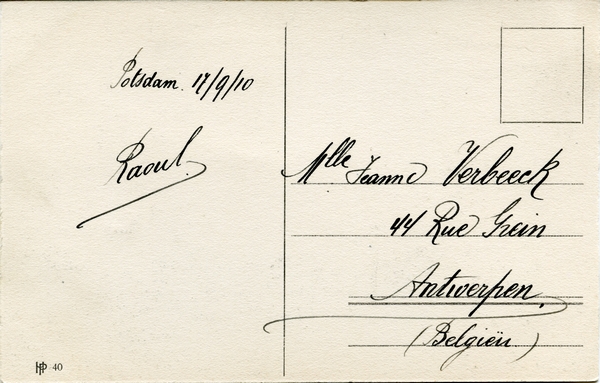 Potsdam. 17/9/10
Raoul.
Mlle Jeanne Verbeeck
44 Rue Grein
Antwerpen.
(Belgiën)
HP 40